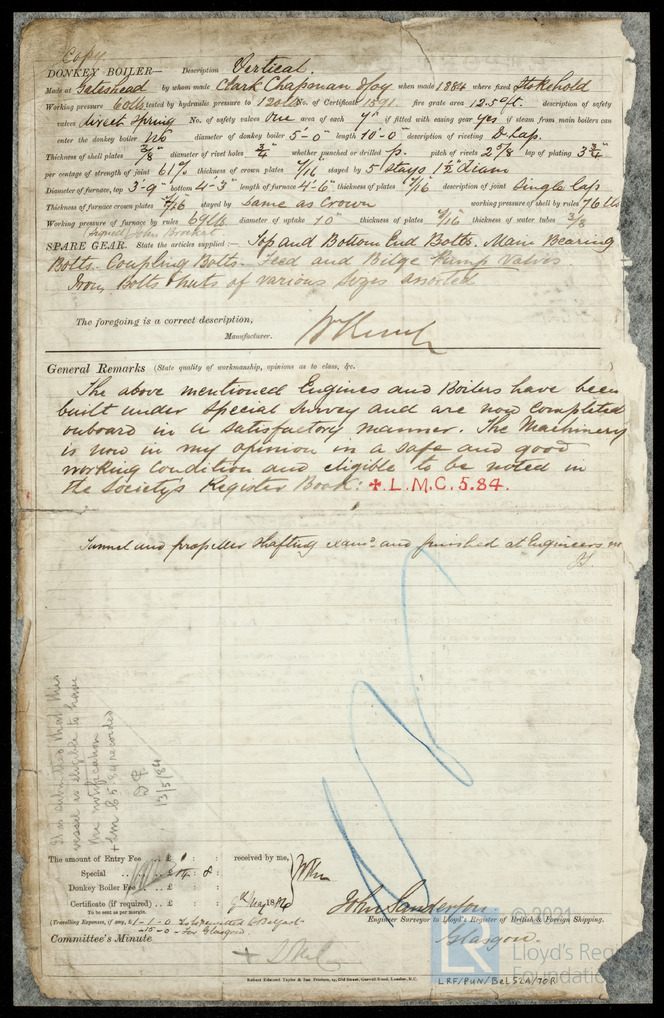 Copy
DONKEY BOILER— Description Vertical.
Made at Gateshead by whom made Clark Chapman & Coy when made 1884 where fixed Stokehold
Working pressure 60lbs tested by hydraulic pressure to 120lbs No. of Certificate 1591. fire grate area 12.5 ft. description of safety
valves direct spring No. of safety valves one area of each if fitted with easing gear yes if steam from main boilers can
enter the donkey boiler No diameter of donkey boiler 5'-0" length 10'-0" description of riveting D. Lap.
Thickness of shell plates 3/8 diameter of rivet holes 3/4" whether punched or drilled p. pitch of rivets 2 5/8 lap of plating 3 3/4"
per centage of strength of joint 61% thickness of crown plates 7/16 stayed by 5 stays 1 1/2" diam
Diameter of furnace, top 3'-9" bottom 4'-3" length of furnace 4'-6" thickness of plates 7/16 description of joint Single lap
Thickness of furnace crown plates 7/16 stayed by Same as Crown working pressure of shell by rules 76 lbs
Working pressure of furnace by rules 69lb diameter of uptake 10" thickness of plates 7/16 thickness of water tubes 3/8
(Signed) John Brockat
SPARE GEAR. State the articles supplied:— Top and Bottom End Bolts. Main Bearing
Bolts. Coupling Bolts. Feed and Bilge Pump Valves
Iron Bolts & nuts of various sizes assorted
The foregoing is a correct description,
Manufacturer.
General Remarks (State quality of workmanship, opinions as to class, &c.
The above mentioned Engines and Boilers have been
built under Special Survey and are now completed
onboard in a satisfactory manner. The Machinery
is now in my opinion in a safe and good
working condition and eligible to be noted in
the Society's Register Book: ✠.L.M.C.5.84.
Tunnel and propeller shafting examd. and finished at Engineers
It is submitted that this
vessel is eligible to have
the notification
+ LMC 5.84 recorded
13/5/84
The amount of Entry Fee .. £ 1 : : received by me,
Special .. .. £ 14 : 8 :
Donkey Boiler Fee .. £ : :
Certificate (if required) .. £ : : 9th May 1884
To be sent as per margin.
(Travelling Expenses, if any, £ 1-1-0 To be remitted to Belfast
-15-0 - For Glasgow.
John Sanderson
Engineer Surveyor to Lloyd's Register of British & Foreign Shipping.
Glasgow.
Committee's Minute
Robert Edmund Taylor & Son Printers, 19, Old Street, Goswell Road, London, E.C.
© 2021
LR
Lloyd's Register
Foundation
LRF/PUN/BEL52A/70R